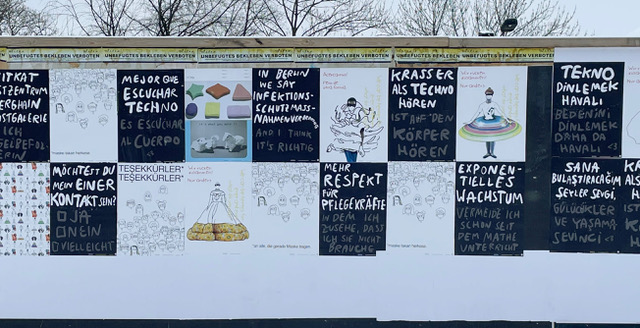 UNBEFUGTES BEKLEBEN VERBOTEN UNBEFUGTES BEKLEBEN VERBOTEN UNBEFUGTES BEKLEBEN VERBOTEN UNBEFUGTES BEKLEBEN VERBOTEN UNBEFUGTES BEKLEBEN VERBOTEN
MEJOR QUE
ESCUCHAR
TECHNO
ES ESCUCHAR
AL CUERPO
IN BERLIN
WE SAY
INFEKTIONS-
SCHUTZMASS-
NAHMENVERORDNUNG
AND I THINK
IT'S RICHTIG
KRASSER
ALS TECHNO
HÖREN
IST AUF DEN
KÖRPER
HÖREN
TEKNO
DİNLEMEK
HAVALI
BEDENİNİ
DİNLEMEK
DAHA DA
HAVALI
MÖCHTEST DU
MEIN EINER
KONTAKT SEIN?
JA
NEIN
VIELLEICHT
TEŞEKKÜRLER*
TEŞEKKÜRLER*
MEHR
RESPEKT
FÜR
PFLEGEKRÄFTE
INDEM ICH
ZUSEHE, DASS
ICH SIE NICHT
BRAUCHE
EXPONEN-
TIELLES
WACHSTUM
VERMEIDE ICH
SCHON SEIT
DEM MATHE
UNTERRICHT
SANA
BULAŞTIRACAĞIM
ŞEYLER SEVGİ,
GÜLÜCÜKLER
VE YAŞAMA
SEVİNCİ